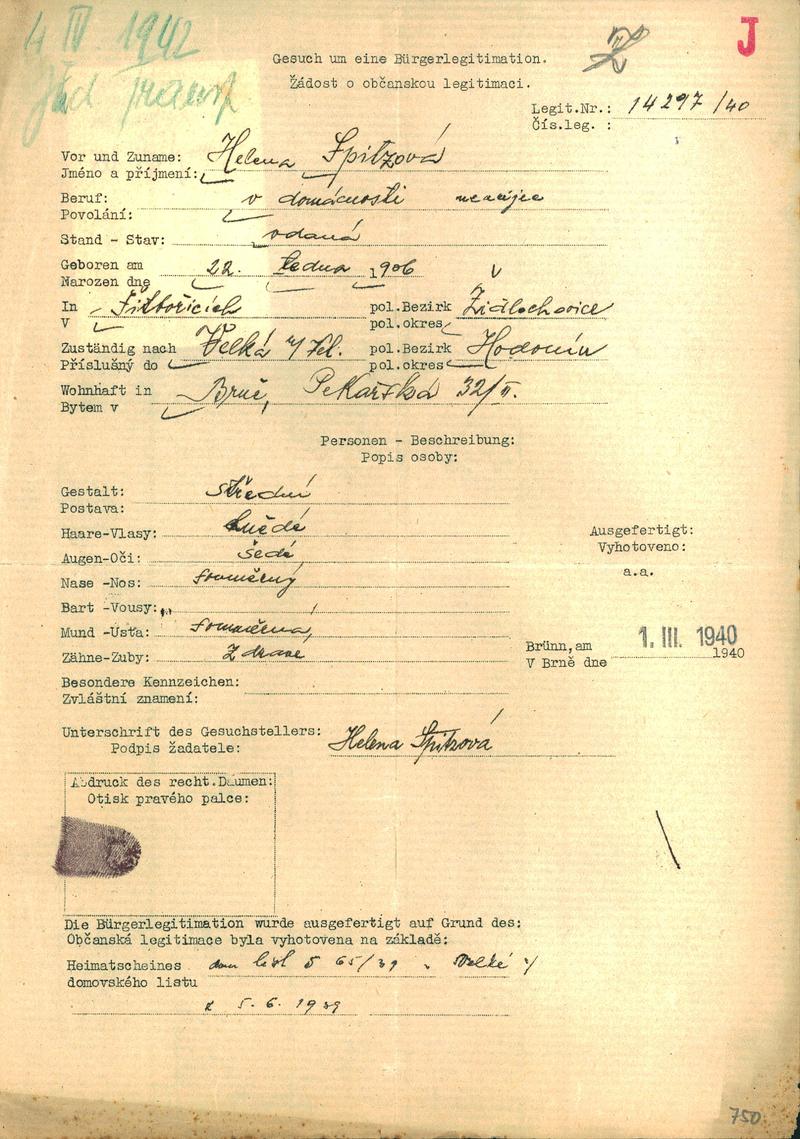 4 IV. 1942
J
Gesuch um eine Bürgerlegitimation.
Žádost o občanskou legitimaci.
Legit.Nr.: 14297/40
Čís.leg. :
Vor und Zuname: Helena Spitzová
Jméno a příjmení:
Beruf: v domácnosti
Povolání:
Stand - Stav: vdaná
Geboren am 22. ledna 1906
Narozen dne
In Šitbořicích pol.Bezirk Židlochovice
V pol.okres
Zuständig nach Velká n/Vel. pol.Bezirk Hodonín
Příslušný do pol.okres
Wohnhaft in Brně, Pekařská 32/II.
Bytem v
Personen - Beschreibung:
Popis osoby:
Gestalt: střední
Postava:
Haare-Vlasy: hnědé
Augen-Oči: šedé
Nase -Nos: souměrný
Bart -Vousy: /
Mund -Usta: souměrná
Zähne-Zuby: Zdravé
Ausgefertigt:
Vyhotoveno:
a.a.
Brünn, am 1. III. 1940
V Brně dne 1940
Besondere Kennzeichen:
Zvláštní znamení:
Unterschrift des Gesuchstellers:
Podpis žadatele: Helena Spitzová
Abdruck des recht.Daumen:
Otisk pravého palce:
Die Bürgerlegitimation wurde ausgefertigt auf Grund des:
Občanská legitimace byla vyhotovena na základě:
Heimatscheines dom list 65/39 Velké
domovského listu
z 5. 6. 1939
750